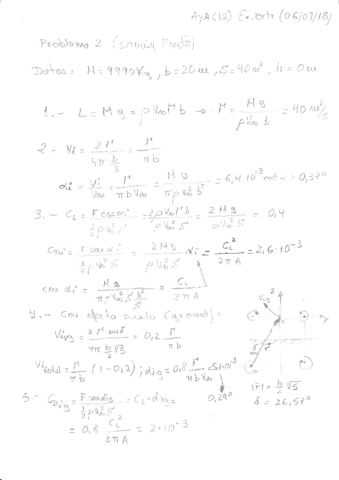 AyA(12) Ex.extr (06/07/18)
Problema 2
Datos = M=9990Kg, b=20m, S=40m², h=0m
1.- L = Mg = ρV∞Γb → Γ = Mg / ρV∞b = 40 m²/s
2.- Vi = 2Γ / 4π b/2 = Γ / πb
αi = Vi / V∞ = Γ / πbV∞ = Mg / πρV∞²b² = 6,4·10⁻³ rad = 0,37º
3.- CL = F cosαi / ½ρV∞²S = 2ρV∞Γb / ρV∞²S = 2Mg / ρV∞²S = 0,4
CDi = F senαi / ½ρV∞²S = 2Mg / ρV∞²S αi = CL² / 2πA = 2,6·10⁻³
con αi = Mg / πρV∞²S b²/S = CL / 2πA
4.- Con efecto suelo (ground):
Vig = 2Γ senδ / 4π b/2 √5 = 0,2 Γ / πb
Vitotal = Γ / πb (1-0,2) ; αig = 0,8 Γ / πbV∞ = 5,1·10⁻³
0,29º
|r| = b/2 √5
δ = 26,57º
5.- CDig = F senαig / ½ρV∞²S = CL·αig =
= 0,8 CL² / 2πA = 2·10⁻³